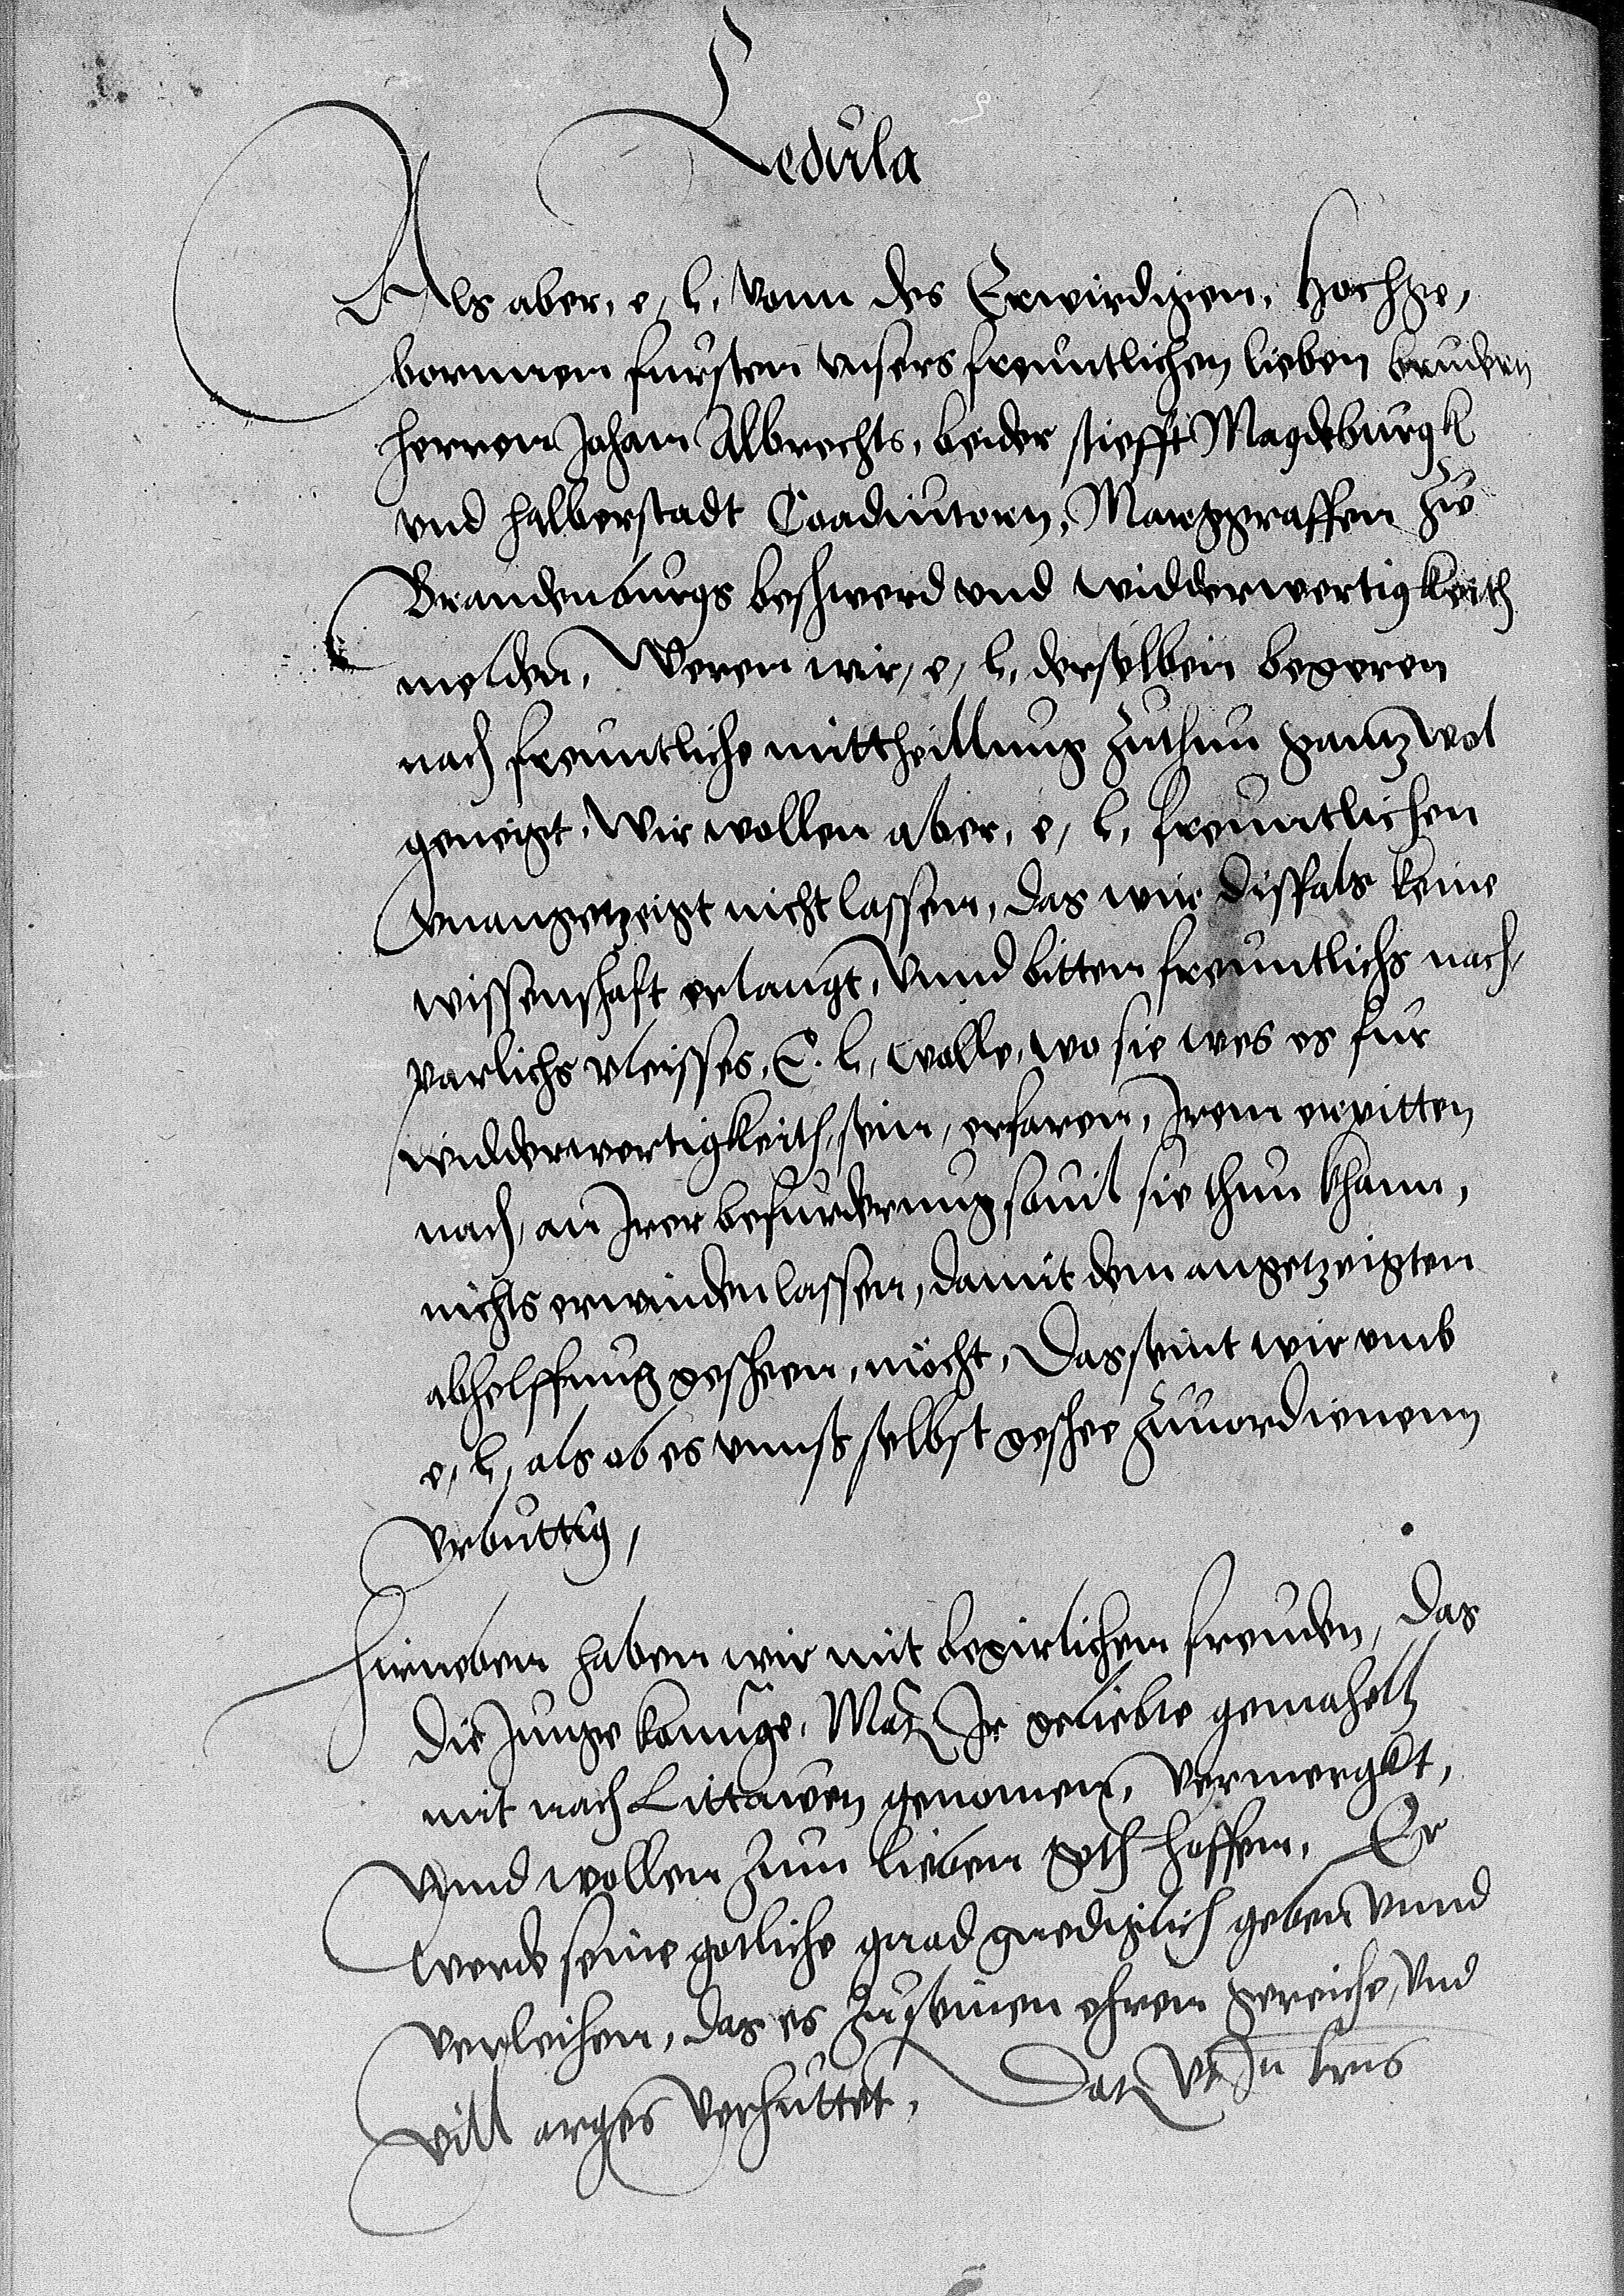 Cedula
Als aber, e, l, vonn des Erwirdigen, Hochge,
bornnen fursten unsers freuntlichen lieben bruders
herren Johann Albrechts, beider stiefft Magdeburgk
vnd halberstadt Coadiutorn, Marggraffen zu
Brandenburgs beshwerd vnd widderwertigkeith
melden, Weren wir, e, l, derselben begeren
nach freuntliche mittheillung zuthun gantz wol
geneigt, Wir wollen aber, e, l, freuntlichen
vnangetzeigt nicht lassen, das wir dissfals keine
wissenschaft erlangt, Vnnd bitten freuntlichs nach,
parlichs vleisses, E. l, wolle, wo sie wes es fur
widderwertigkeith, sein, erfaren, Irem erpitten
nach, an Irer befurderung souil sie thun khann,
nichts erwinden lassen, damit dem angetzeigten
abhelffung gesheen, möcht, Das seint wir vmb
e, l, als ob es vnnss selbst geshee zuuordienenn
Vrbuttig,
Hirneben haben wir mit begirlichen freuden, Das
die Junge konnige, Mat Ir geliebte gemahell
mit nach Littawen genomen, Vermergkt,
Vnnd wollen zum lieben goth hoffen, Er
werde seine gotliche gnad gnediglich geben Vnnd
verleihen, das es zu seinen ehren gereiche, Vnd
vill arges verhuttet, Dat Vt In lris